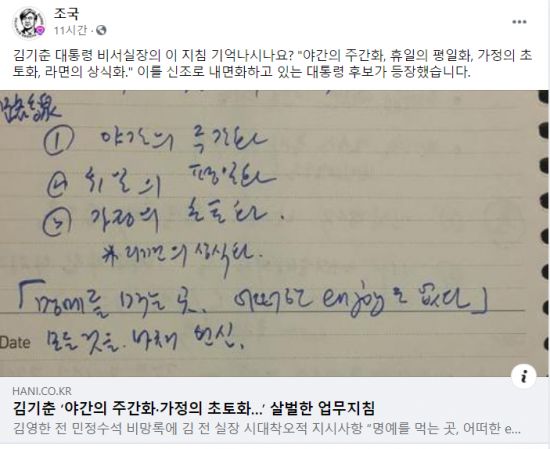 조국
11시간 ·
김기춘 대통령 비서실장의 이 지침 기억나시나요? "야간의 주간화, 휴일의 평일화, 가정의 초
토화, 라면의 상식화." 이를 신조로 내면화하고 있는 대통령 후보가 등장했습니다.
① 야간의 주간화
② 휴일의 평일화
③ 가정의 초토화.
※ 라면의 상식화.
「명예를 먹는 곳, 어떠한 enjoy도 없다」
Date 모든 것을 바쳐 헌신.
HANI.CO.KR
김기춘 '야간의 주간화·가정의 초토화…' 살벌한 업무지침
김영한 전 민정수석 비망록에 김 전 실장 시대착오적 지시사항 "명예를 먹는 곳, 어떠한 e...